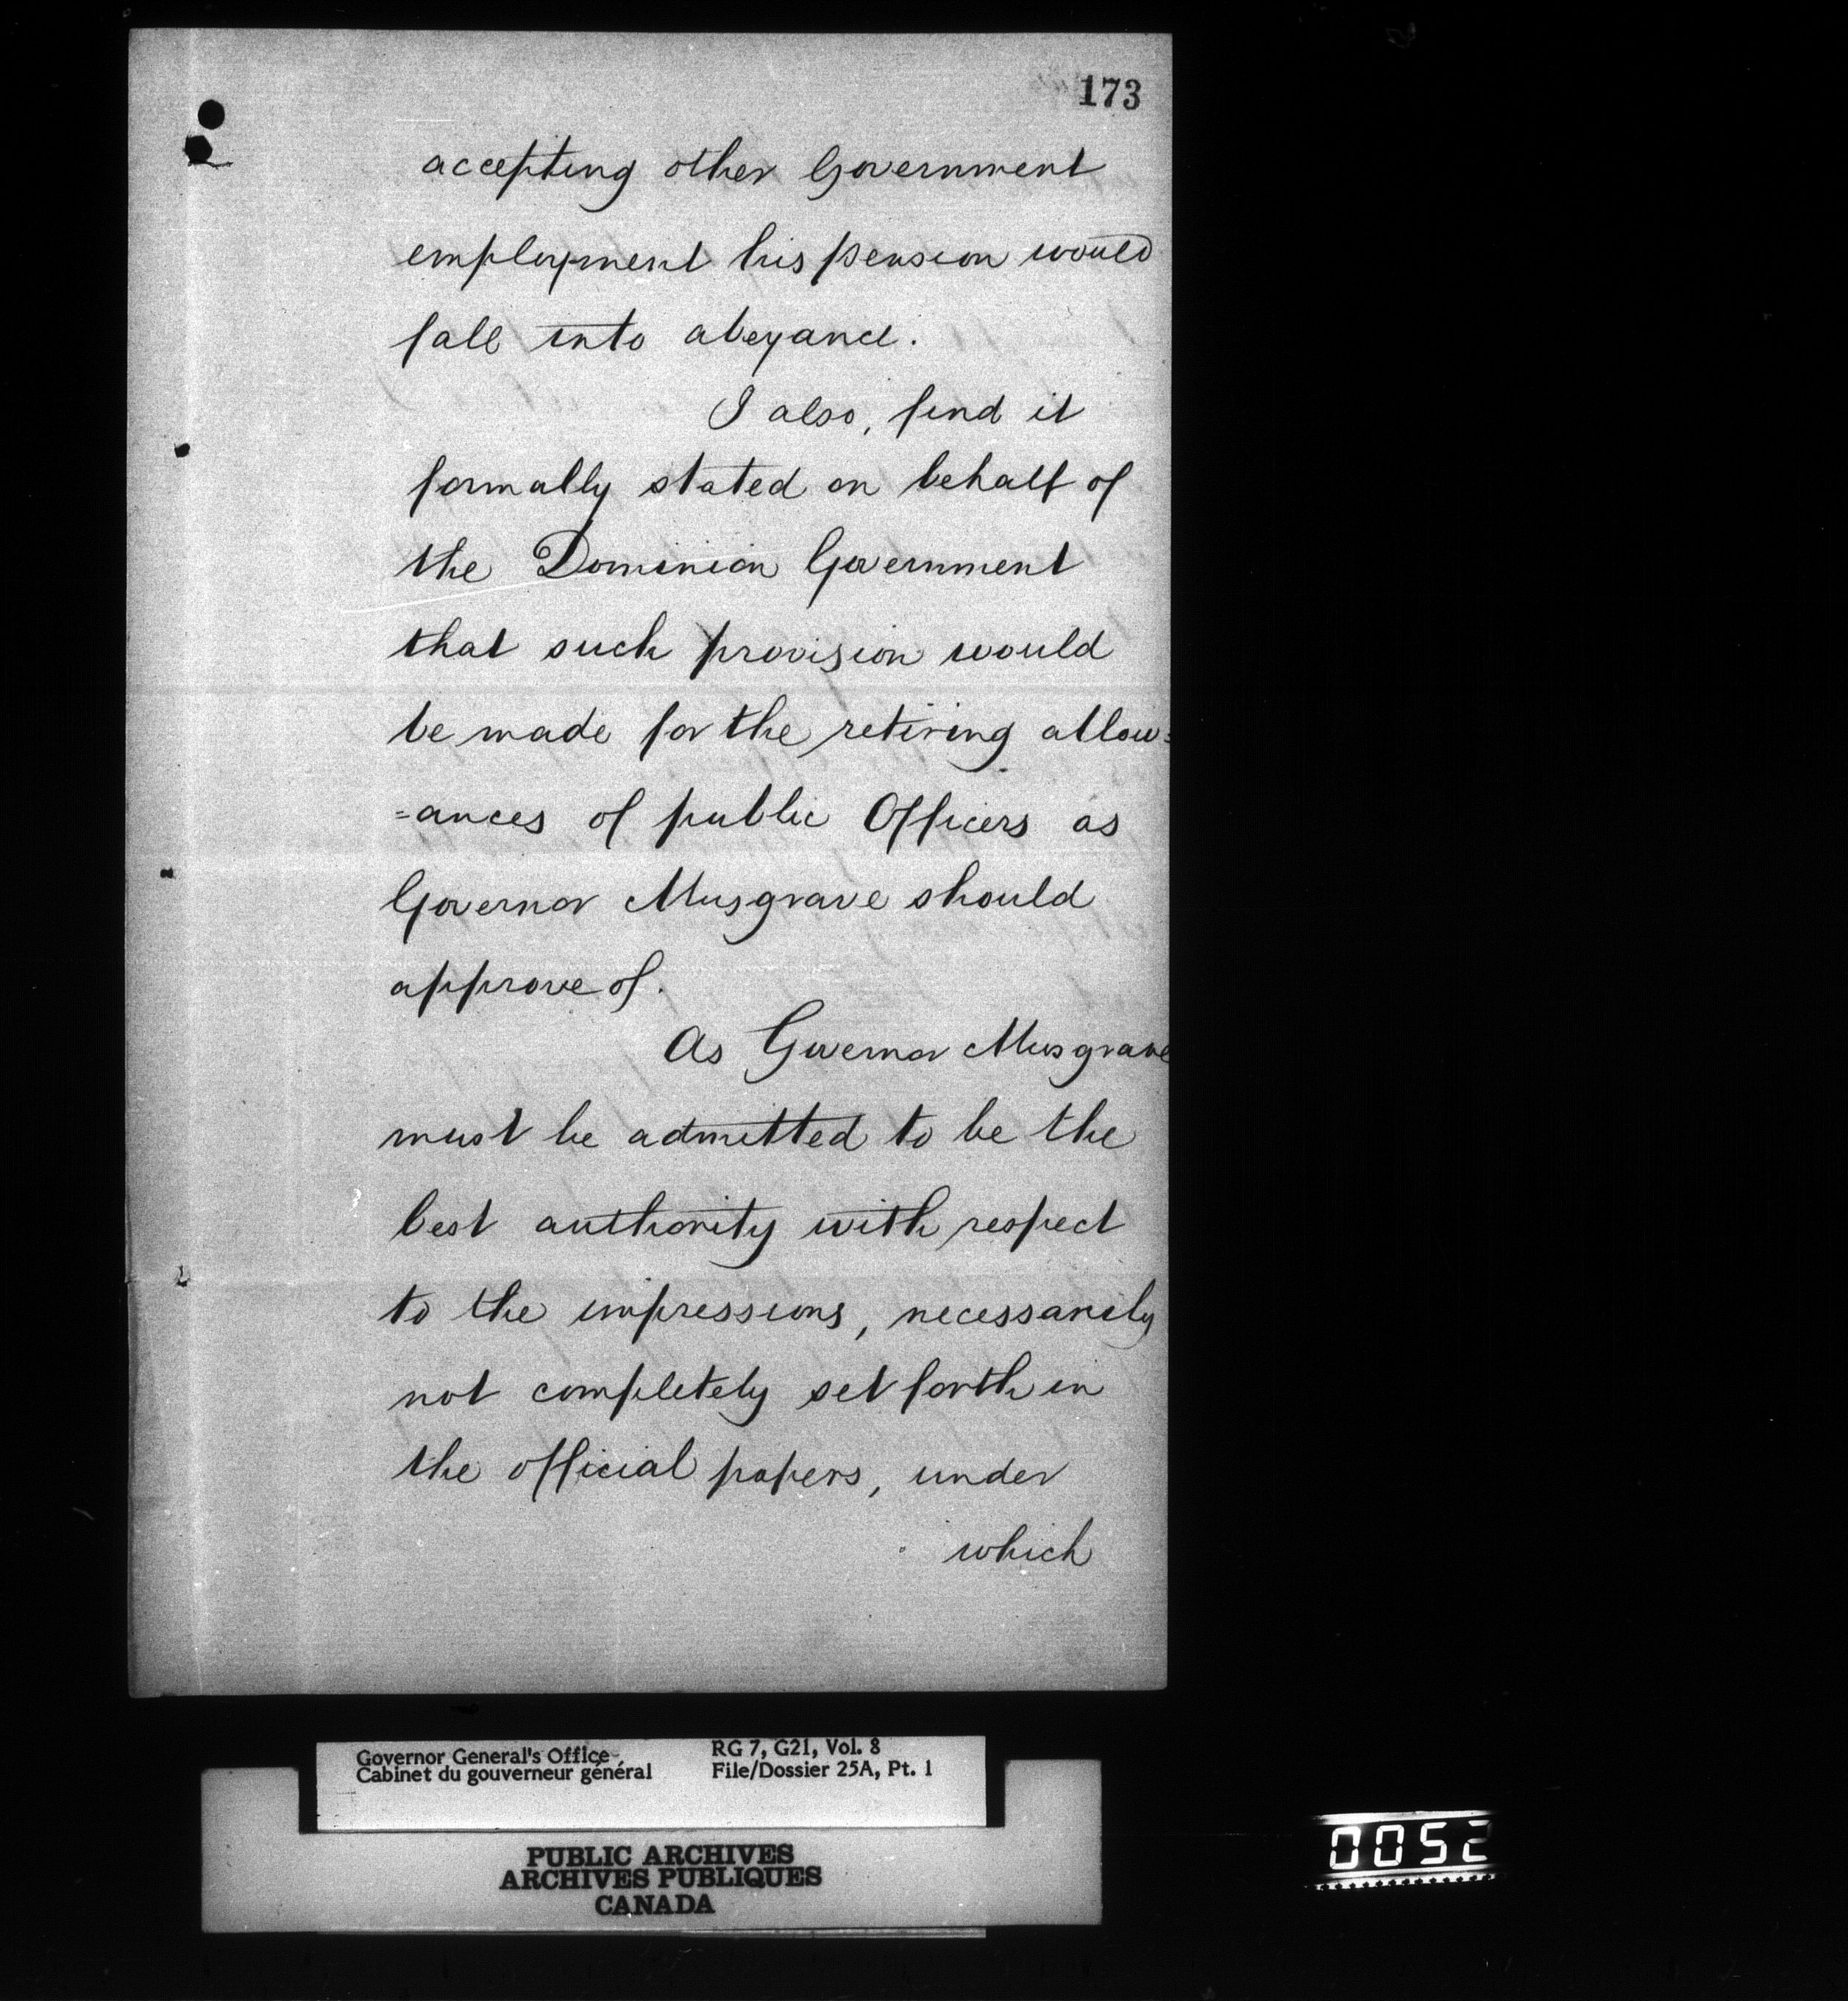 173
accepting other Government
employment his pension would
fall into abeyance.
I also, find it
formally stated on behalf of
the Dominion Government
that such provision would
be made for the retiring allow=
=ances of public Officers as
Governor Musgrave should
approve of.
As Governor Musgrave
must be admitted to be the
best authority with respect
to the impressions, necessarily
not completely set forth in
the official papers, under
which
Governor General's Office
Cabinet du gouverneur général
RG 7, G21, Vol. 8
File/Dossier 25A, Pt. 1
PUBLIC ARCHIVES
ARCHIVES PUBLIQUES
CANADA
0052